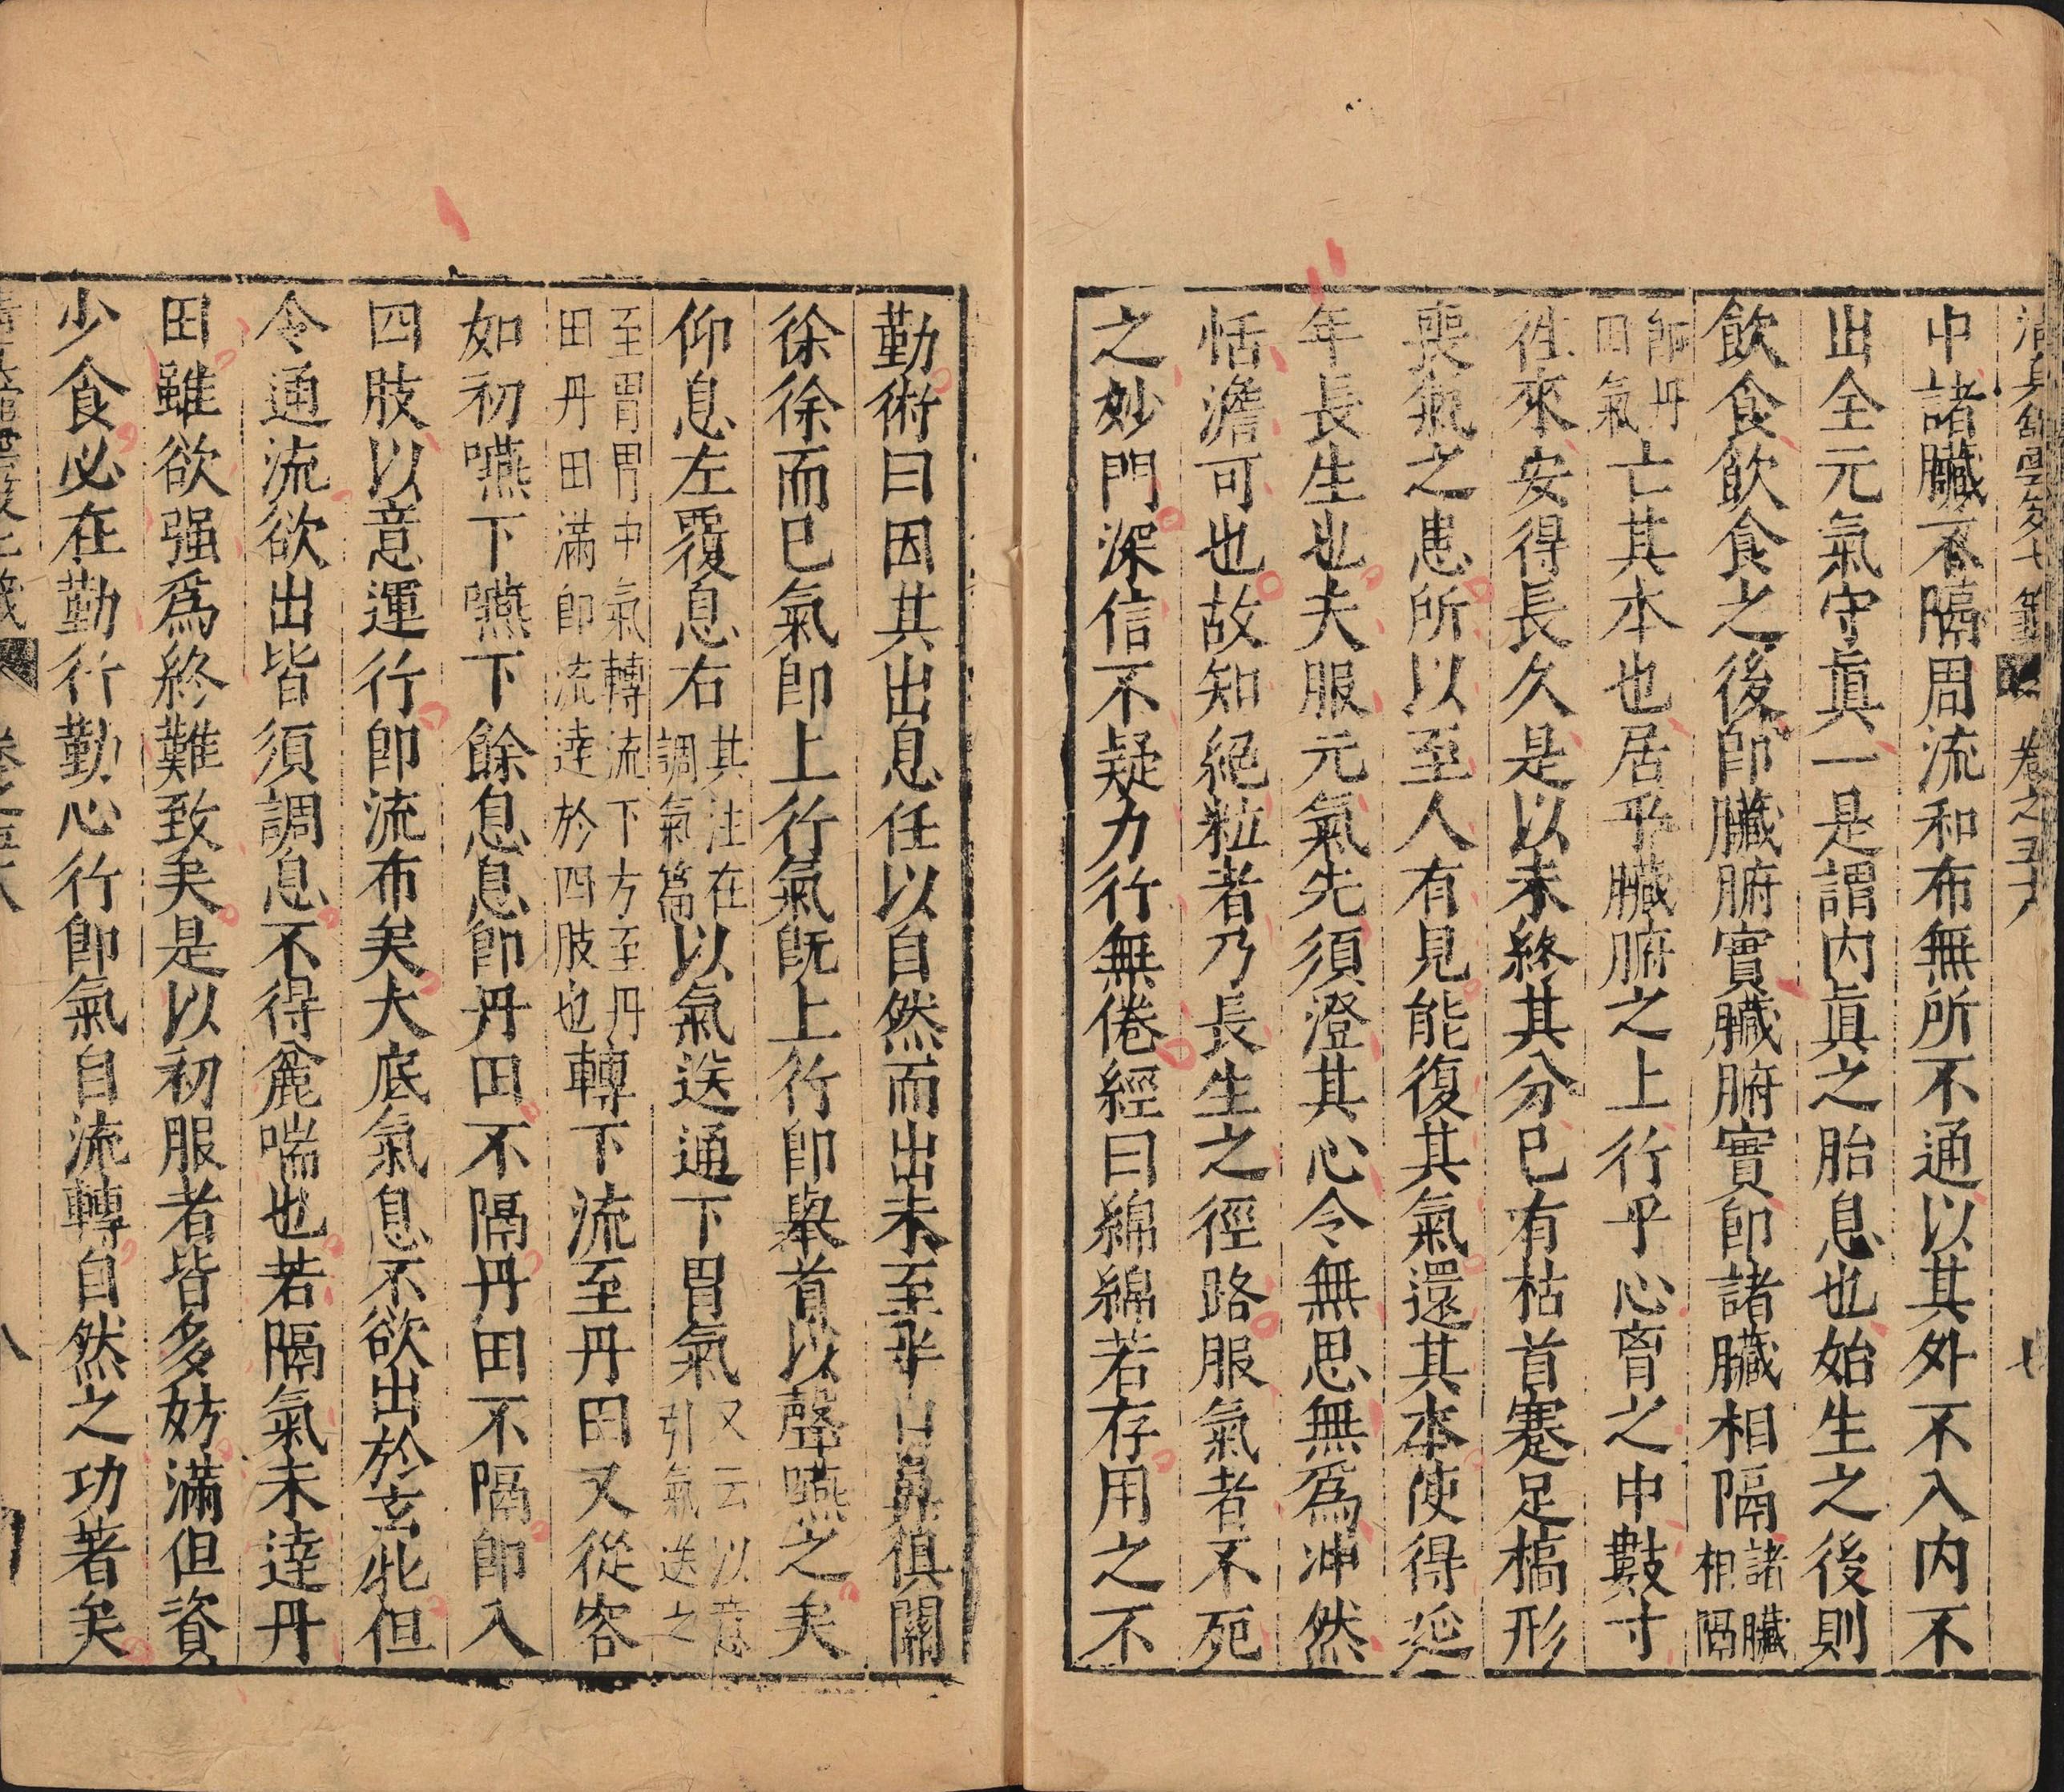 清真館雲笈七籤 卷之五十八 七
中諸臟不隔周流和布無所不通以其外不入内不
出全元氣守眞一是謂内眞之胎息也始生之後則
飲食飲食之後即臟腑實臟腑實即諸臟相隔諸臟相隔
即丹田氣亡其本也居乎臟腑之上行乎心肓之中數寸
徃來安得長久是以未終其分已有枯首蹇足槁形
喪氣之患所以至人有見能復其氣還其本使得延
年長生也夫服元氣先須澄其心令無思無爲冲然
恬澹可也故知絕粒者乃長生之徑路服氣者不死
之妙門深信不疑力行無倦經曰綿綿若存用之不
勤術曰因其出息任以自然而出未至半口鼻俱關
徐徐而已氣即上行氣旣上行即舉首以聲嚥之矣
仰息左覆息右其注在調氣篇以氣送通下胃氣又云以意引氣送之
至胃胃中氣轉流下方至丹田丹田滿即流達於四肢也轉下流至丹田又從容
如初嚥下嚥下餘息息即丹田不隔丹田不隔即入
四肢以意運行即流布矣大底氣息不欲出於玄牝但
令通流欲出皆須調息不得麄喘也若隔氣未達丹
田雖欲强爲終難致矣是以初服者皆多妨滿但資
少食必在勤行勤心行即氣自流轉自然之功著矣
卷之五十八 八